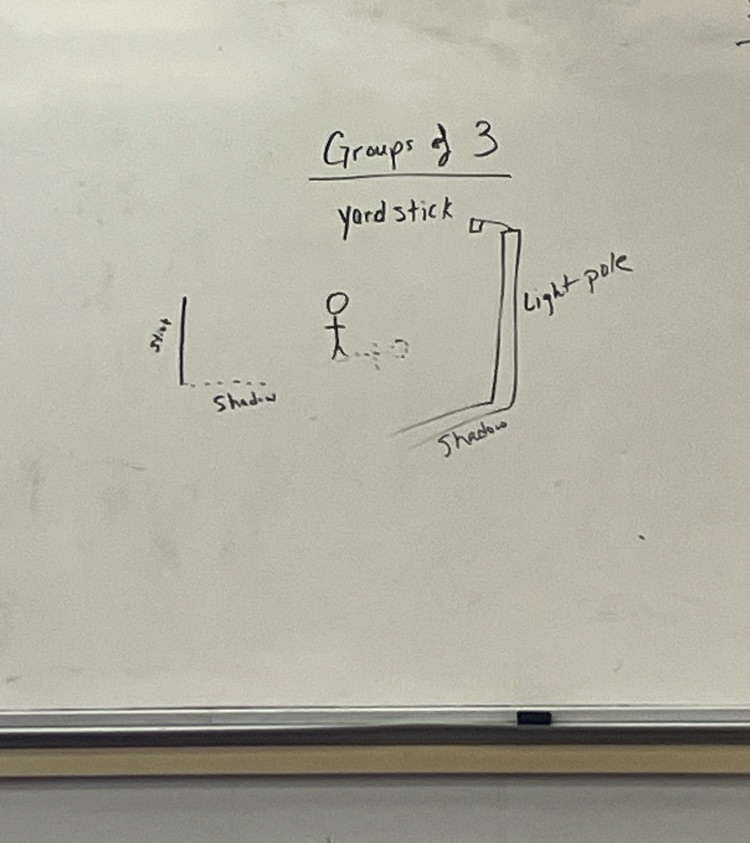 Groups of 3
yardstick
Light pole
Shadow
Shadow